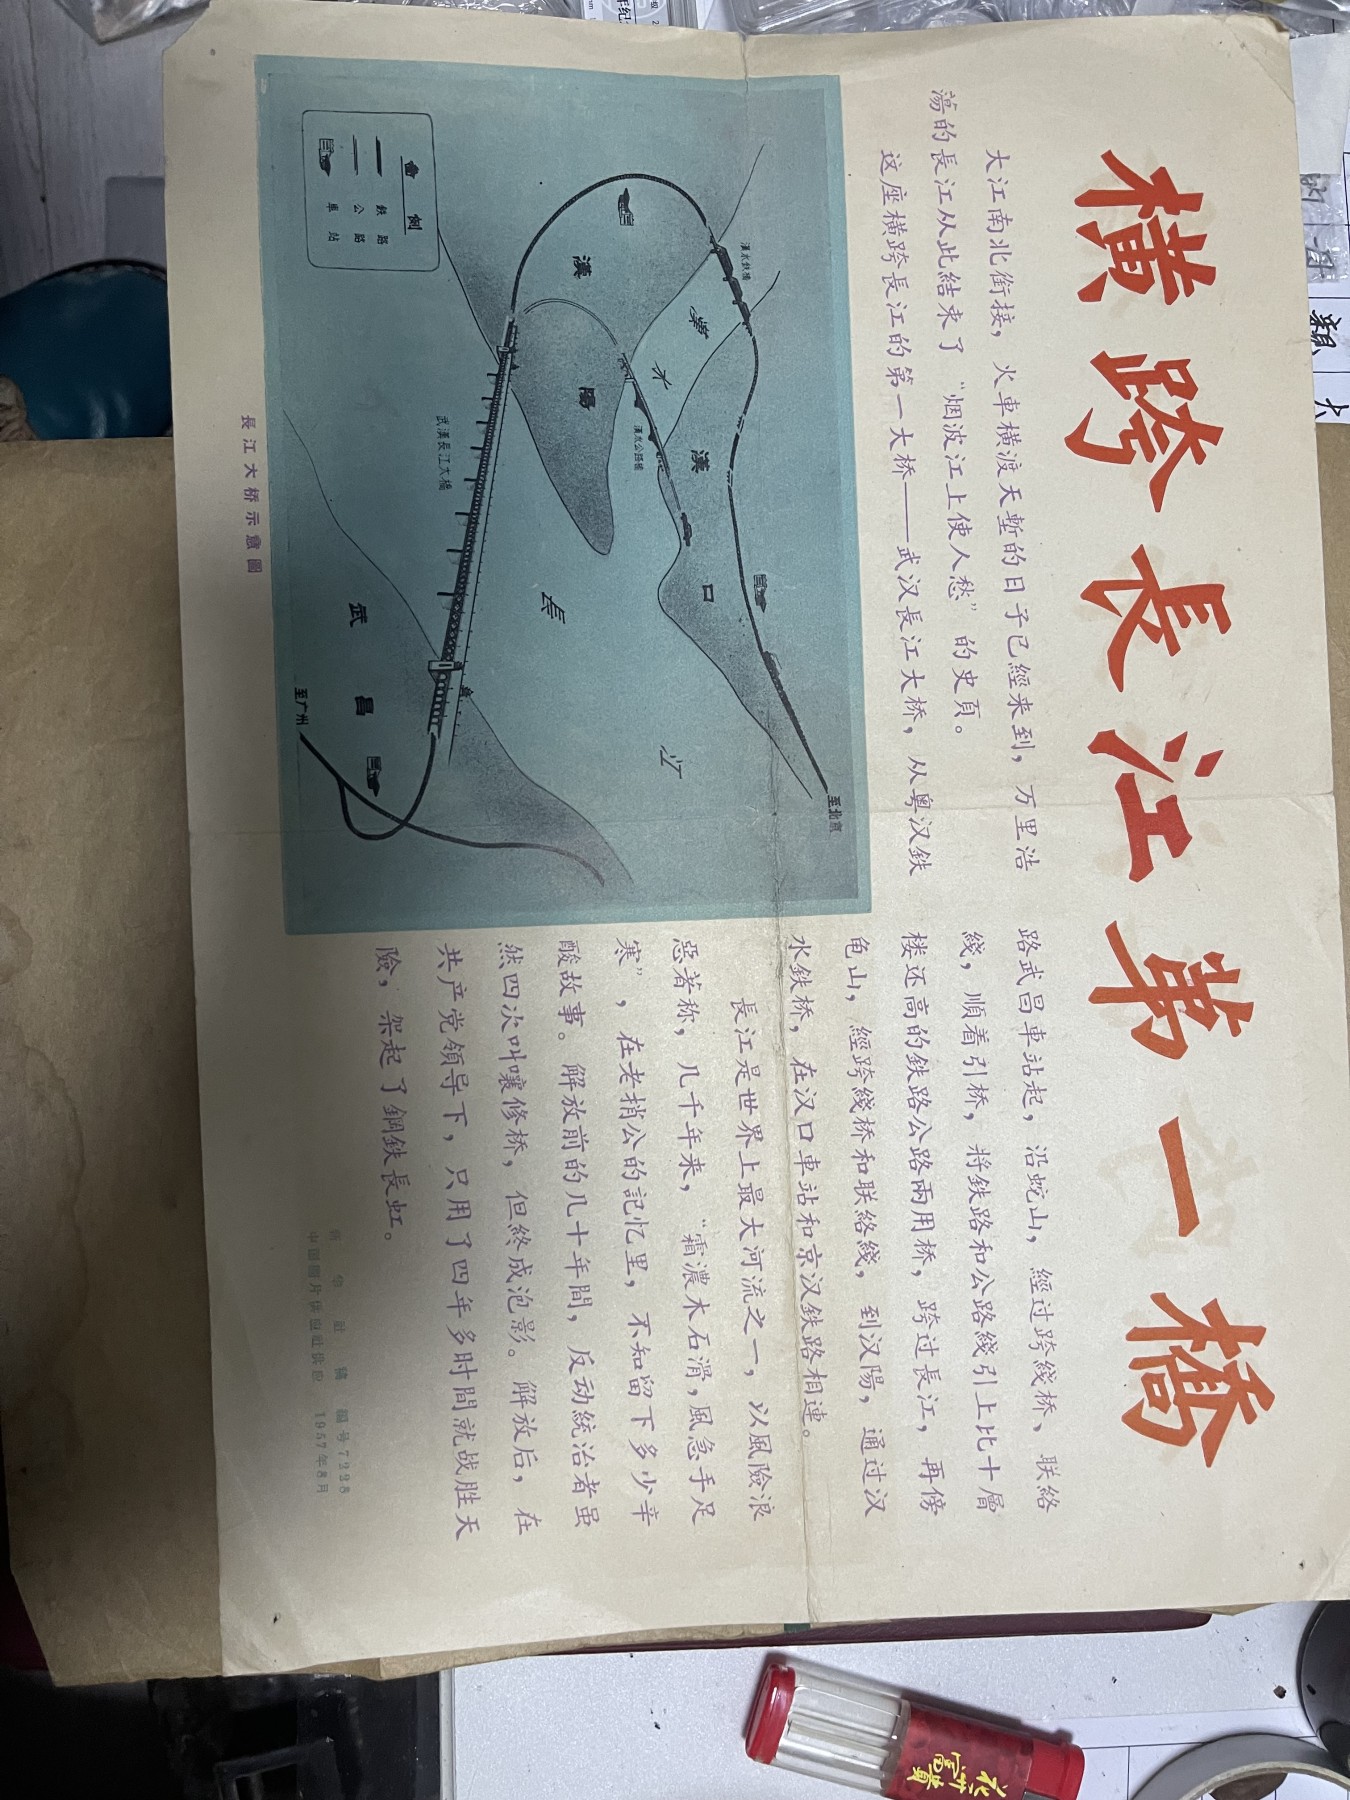 横跨長江第一橋
大江南北衔接，火車横渡天塹的日子已經来到，万里浩
蕩的長江从此結束了“烟波江上使人愁”的史頁。
这座横跨長江的第一大桥——武汉長江大桥，从粤汉鉄
路武昌車站起，沿蛇山，經过跨綫桥、联絡
綫，順着引桥，將鉄路和公路綫引上比十層
楼还高的鉄路公路兩用桥，跨过長江，再傍
龟山，經跨綫桥和联絡綫，到汉陽，通过汉
水鉄桥，在汉口車站和京汉鉄路相連。
長江是世界上最大河流之一，以風險浪
惡著称，几千年来，“霜濃木石滑，風急手足
寒”，在老梢公的記忆里，不知留下多少辛
酸故事。解放前的几十年間，反动統治者虽
然四次叫嚷修桥，但終成泡影。解放后，在
共产党領导下，只用了四年多时間就战胜天
險，架起了鋼鉄長虹。
新华社稿 編号7298
中国圖片供应社供应 1957年8月
圖例
鉄路
公路
車站
漢水鉄橋
漢水
漢陽
漢水公路橋
漢口
武漢長江大橋
長江
武昌
至广州
至北京
長江大桥示意圖
花开富貴